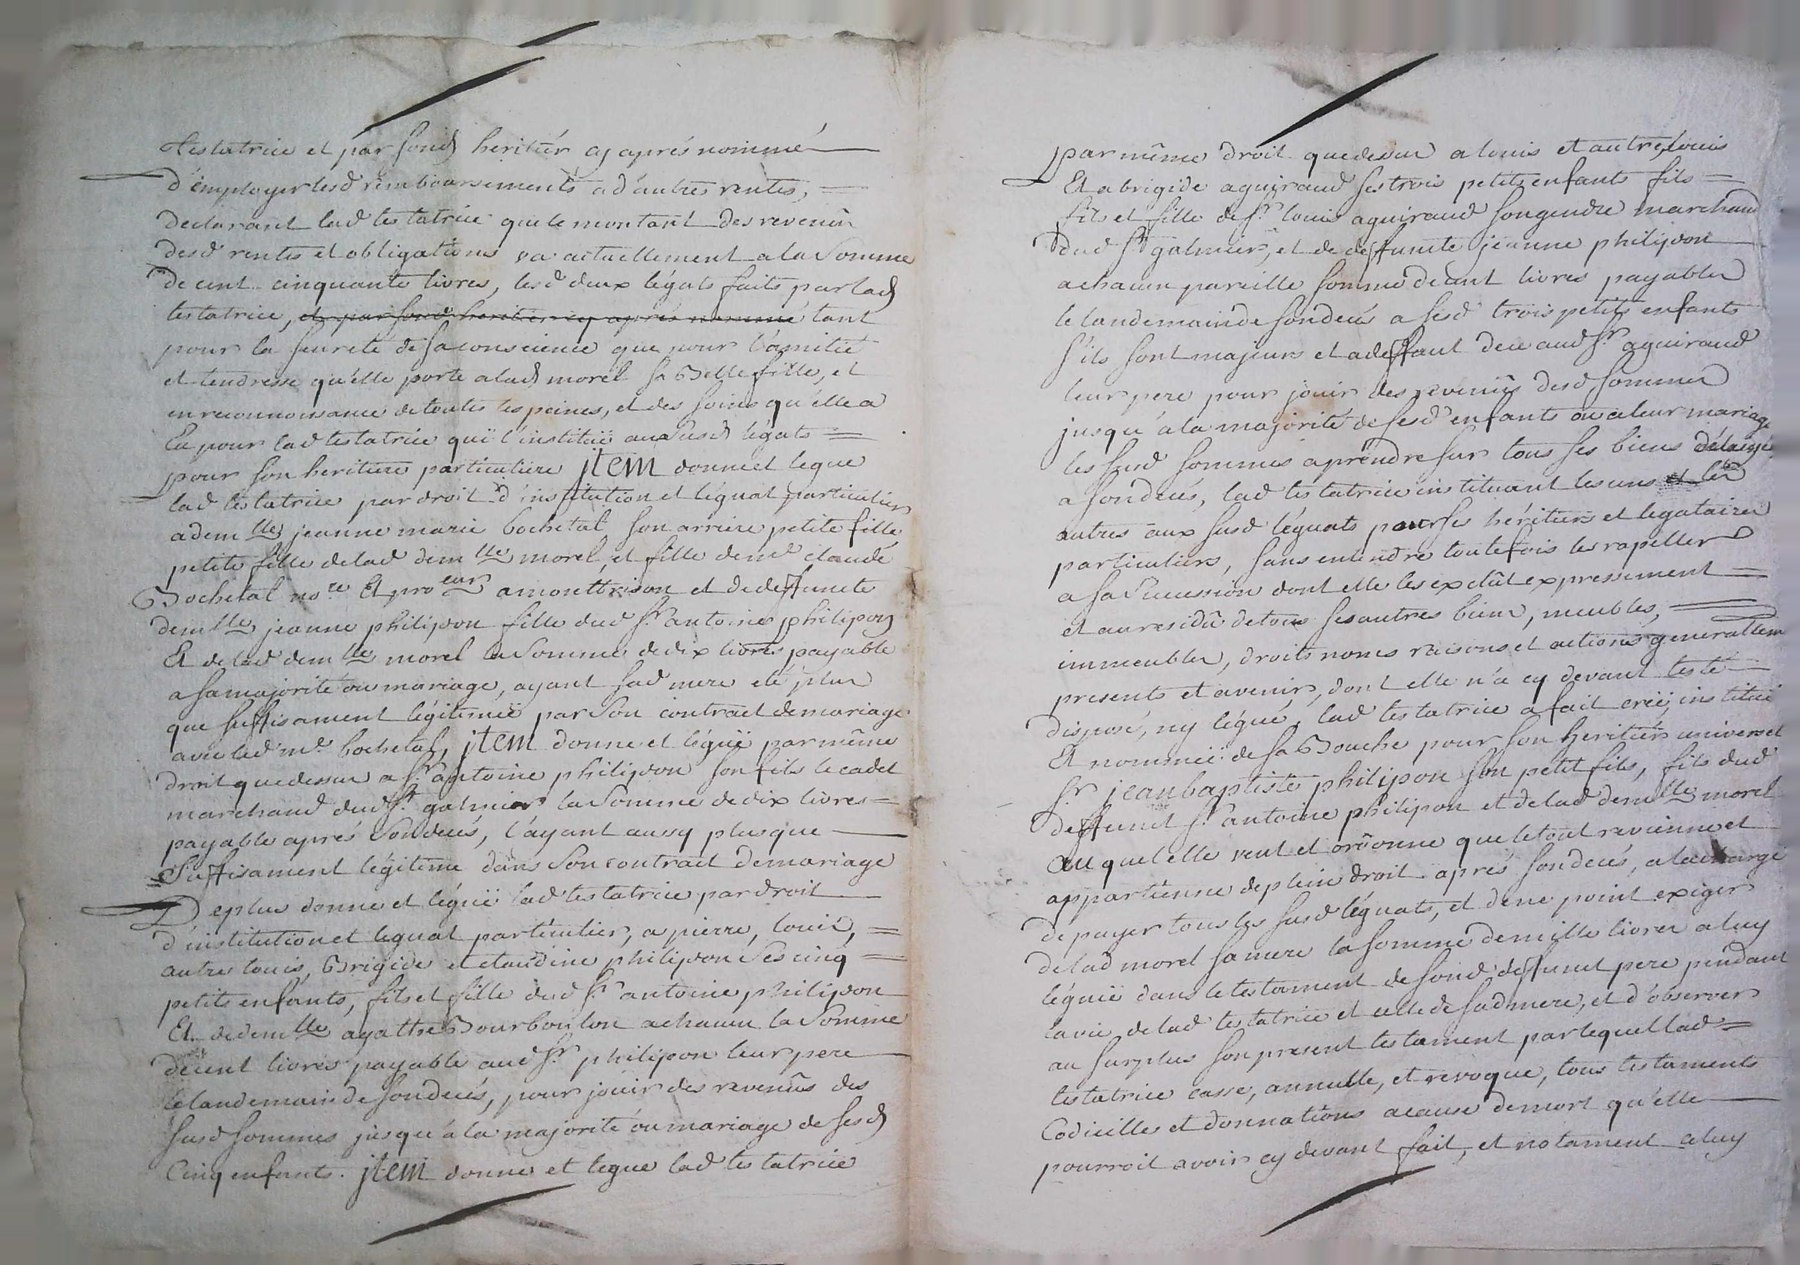 testatrice et par sond heritier cy aprés nommé
d'employer lesd remboursements a d'autres rentes,
declarant lad testatrice que le montant des revenûs
desd rentes et obligations va actuellement a la somme
de cent cinquante livres, lesd deux légats faits par lad
testatrice, et par sond heritier cy aprés nommé tant
pour la seureté de sa conscience que pour l'amitié
et tendresse qu'elle porte a lad morel sa Belle fille, et
en reconnoissance de toutes les peines, et des soins qu'elle a
Eu pour lad testatrice qui l'instituë aux susd légats
pour son heritiere particuliere jtem donne et legue
lad testatrice par droit d'institution et léguat particulier
a demlle jeanne marie bochetal son arriere petite fille
petite fille de lad demlle morel, et fille de me claude
Bochetal nore Et procur a montbrison et de deffunte
demlle jeanne philipon fille dud sr antoine philipon
Et de lad demlle morel la somme de dix livres payable
a sa majorité ou mariage, ayant sad mere eté plus
que suffisament légitimeë par son contract de mariage
avec led me bochetal, jtem donne et léguë par même
droit que dessus a sr antoine philipon son fils le cadet
marchand dud st galmier la somme de dix livres
payable aprés son decés, l'ayant aussy plus que
suffisament légitimé dans son contract de mariage
De plus donne et léguë lad testatrice par droit
d'institution et leguat particulier, a pierre, louis,
autre louis, Brigide et claudine philipon ses cinq
petits enfants, fils et fille dud sr antoine philipon
Et de demlle agathe Bourboulon a chacun la somme
de cent livres payable aud sr philipon leur pere
le landemain de son decés, pour joüir des revenûs des
susd sommes jusqu'a la majorité ou mariage de sesd
Cinq enfants. jtem donne et legue lad testatrice
par même droit que dessus a louis et autre louis
Et a brigide aguiraud ses trois petits enfants fils
fils et fille de sr louis aguiraud son gendre marchand
dud st galmier, et de deffunte jeanne philipon
a chacun pareille somme de cent livres payables
le landemain de son decés a sesd trois petits enfants
s'ils sont majeurs et a deffaut d'eu aud sr aguiraud
leur pere pour joüir des revenûs desd sommes
jusqu'a la majorité de sesd enfants ou a leur mariage
les susd sommes a prendre sur tous ses biens
a son decés, lad testatrice instituant les uns et les
autres aux susd léguats pour ses héritiers et legataires
particuliers, sans entendre toutefois les rapeller
a sa succession dont elle les exclût expressement
et au residû de tous ses autres biens, meubles,
immeubles, droits noms raisons et actions generallement
presents et avenir, dont elle n'a cy devant testé
disposé, ny légué, lad testatrice a fait creé, institué
Et nommé de sa Bouche pour son heritier universel
sr jean baptiste philipon son petit fils, fils dud
deffunt sr antoine philipon et de lad demlle morel
Au quel elle veut et ordonne que le tout revienne et
appartienne de plein droit aprés son decés, a la charge
de payer tous les susd léguats, et de ne point exiger
de lad morel sa mere la somme de mille livres a luy
léguëe dans le testament de sond deffunt pere pendant
la vie de lad testatrice et celle de sad mere, et d'observer
au surplus son present testament par lequel lad
testatrice casse, annulle, et revoque, tous testaments
Codicilles et donnations a cause de mort qu'elle
pourroit avoir cy devant fait, et notament celuy